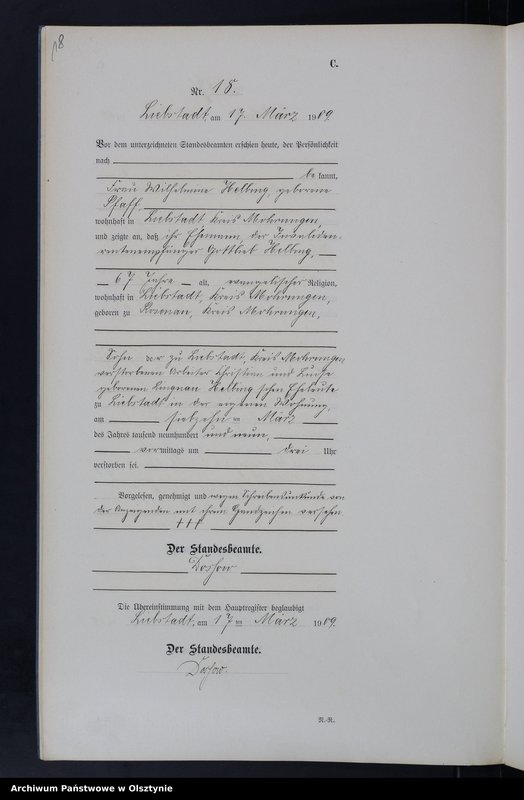 18
C.
Nr. 18.
Liebstadt, am 17. März 1909.
Vor dem unterzeichneten Standesbeamten erschien heute, der Persönlichkeit
nach
be kannt,
Frau Wilhelmine Helbing, geborene
Pfaff,
wohnhaft in Liebstadt Kreis Mohrungen,
und zeigte an, daß ihr Ehemann, der Invaliden-
rentenempfänger Gottlieb Helbing,
67 Jahre alt, evangelischer Religion,
wohnhaft in Liebstadt, Kreis Mohrungen,
geboren zu Kreis Mohrungen,
Sohn der zu Liebstadt, Kreis Mohrungen
verstorbenen Arbeiter Christian und
geborenen Helbing'schen Eheleute
zu Liebstadt in der eigenen Wohnung,
am siebzehnten März
des Jahres tausend neunhundert und neun,
vormittags um drei Uhr
verstorben sei.
Vorgelesen, genehmigt und wegen Schreibensunkunde von
der Anzeigenden mit ihrem Handzeichen versehen
+++
Der Standesbeamte.
Die Übereinstimmung mit dem Hauptregister beglaubigt
Liebstadt, am 17ten März 1909.
Der Standesbeamte.
N.-R.
Archiwum Państwowe w Olsztynie